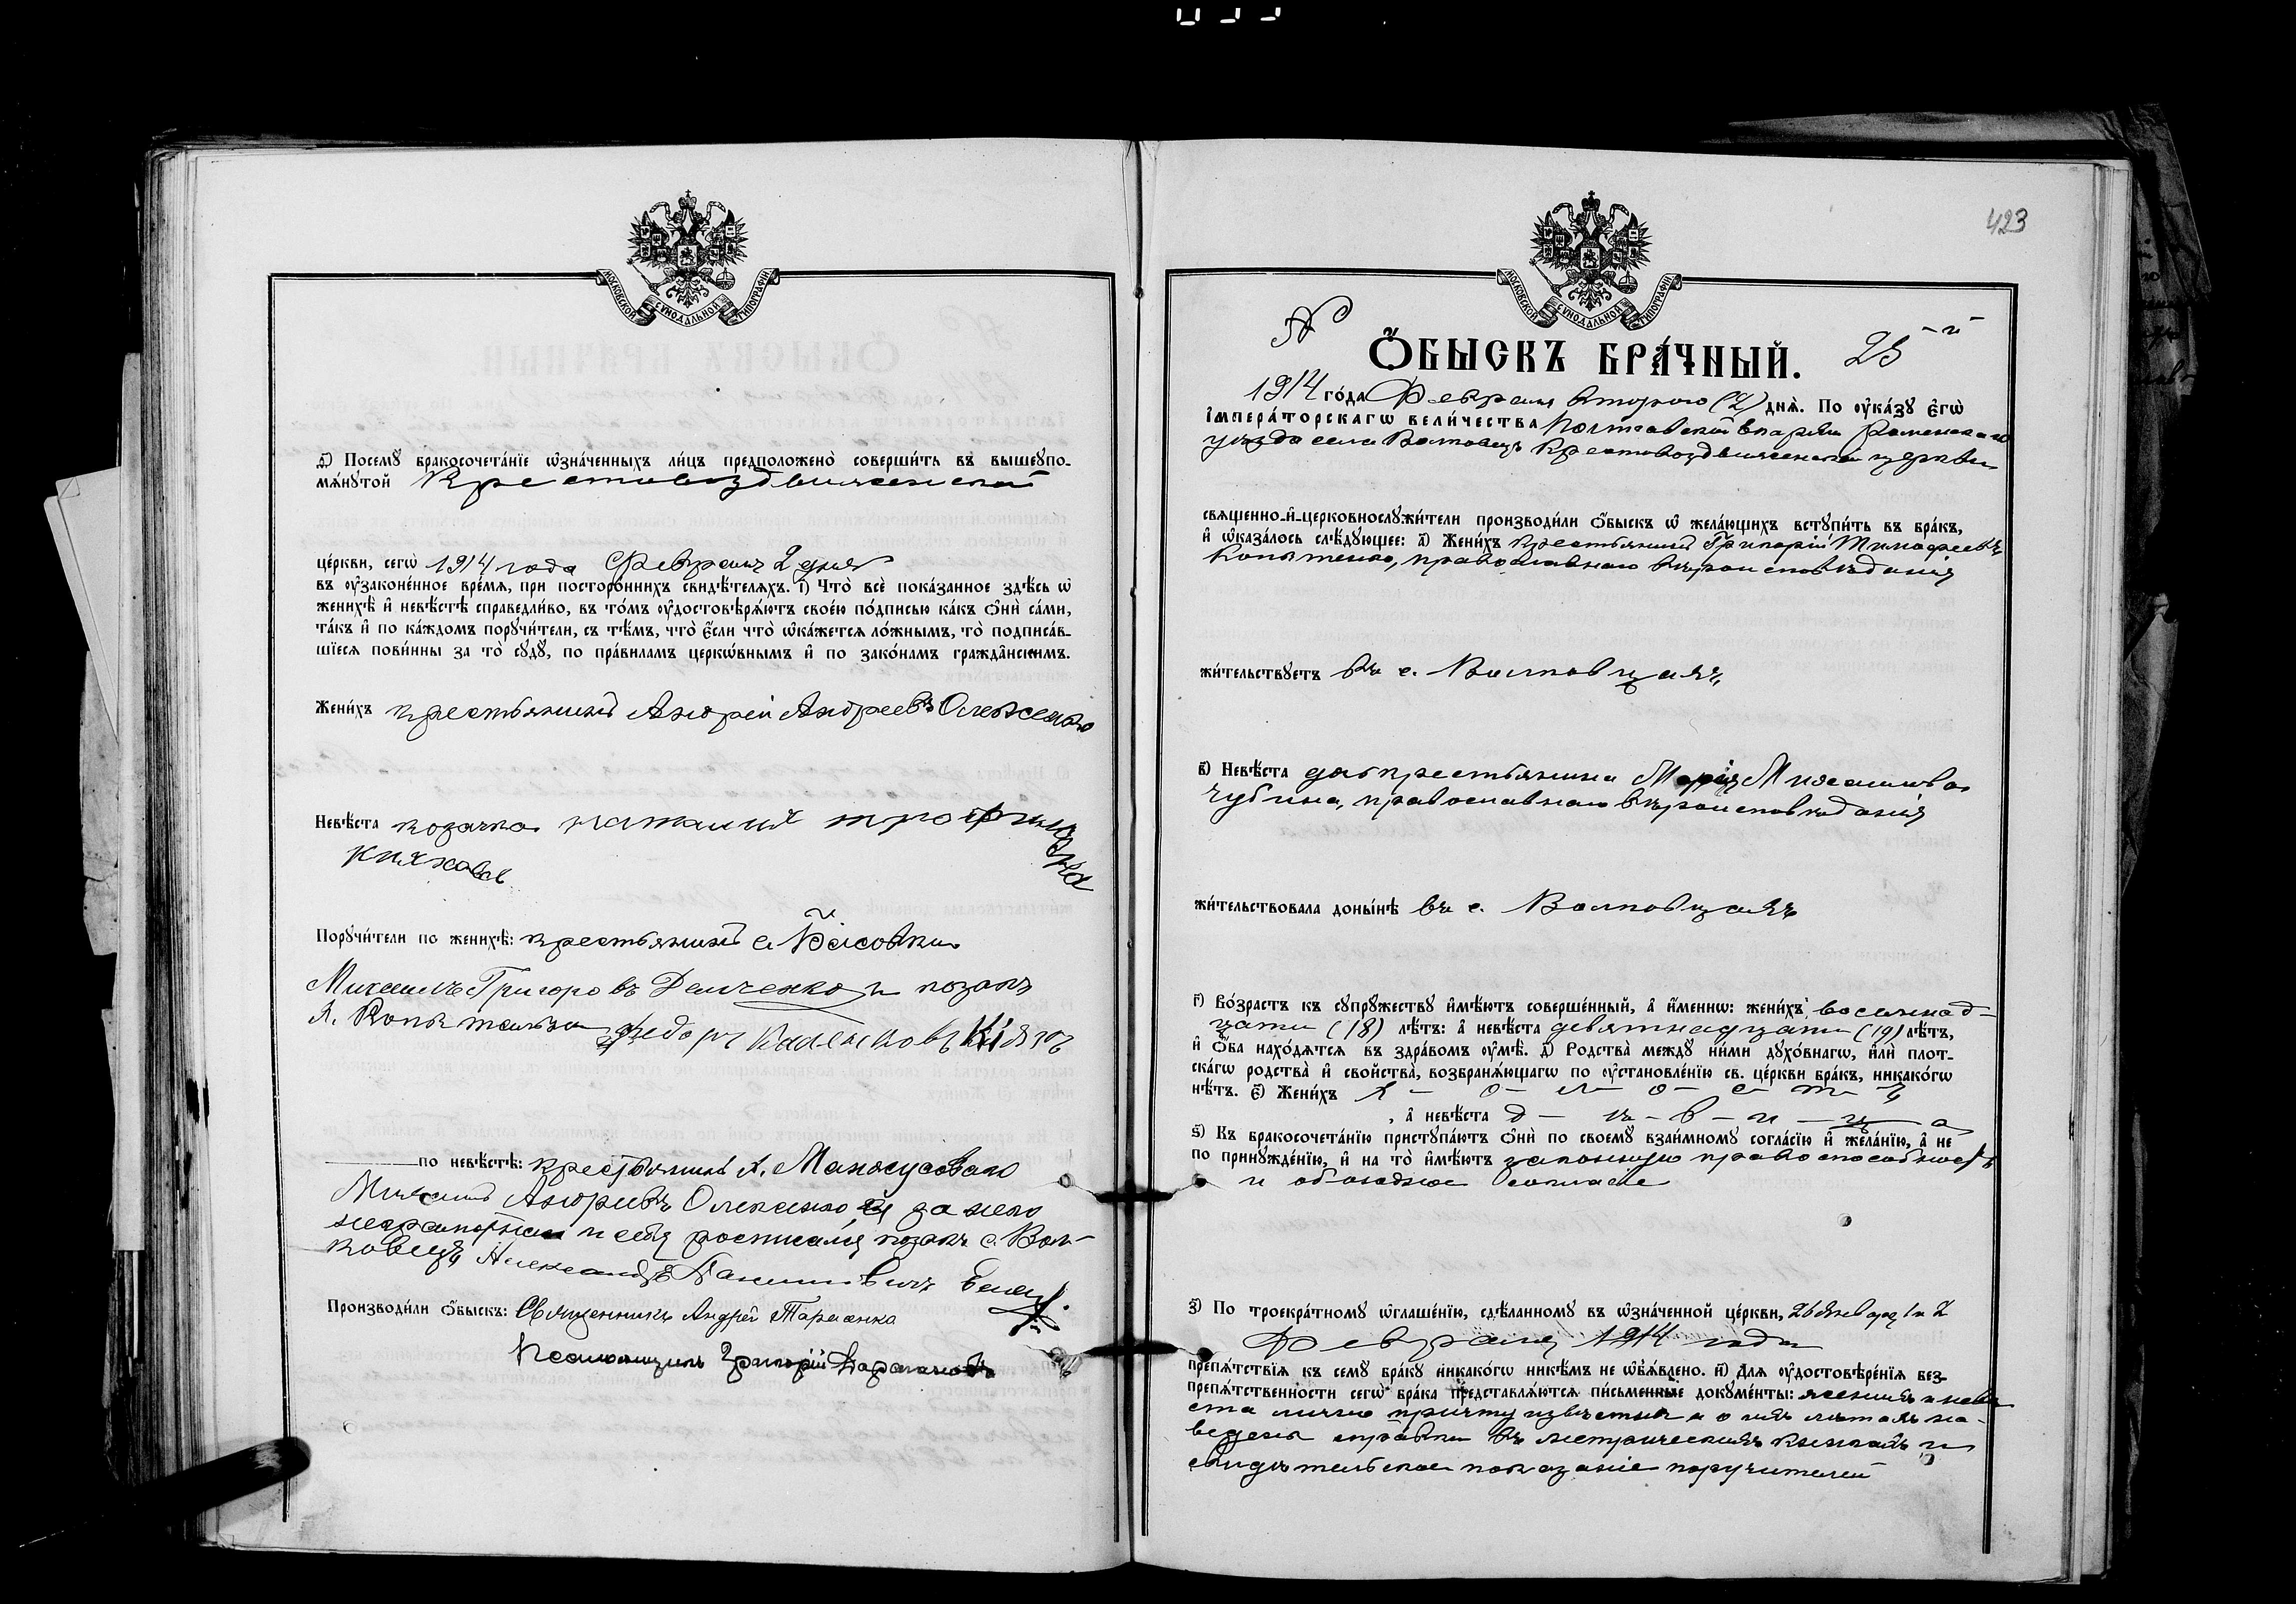 МОСКОВСКОЙ СѴНОДАЛЬНОЙ ТИПОГРАФІИ
ѳ҃) Посемꙋ̀ бракосочета́нїе ѡ҆зна́ченныхъ ли́цъ предположено̀ соверши́ть въ вышеꙋпо-
мѧ́нꙋтой Крестовоздвиженской
це́ркви, сегѡ̀ 1914 года Февраля 2 дня
въ ᲂу҆законе́нное вре́мѧ, при посторо́ннихъ свидѣ́телѧхъ. і҃) Что̀ всѐ пока́занное здѣ́сь ѡ҆
женихѣ̀ и҆ невѣ́стѣ справедли́во, въ то́мъ ᲂу҆достовѣрѧ́ютъ свое́ю по́дписью ка́къ ѻ҆нѝ са́ми,
та́къ и҆ по ка́ждомъ порꙋчи́тели, съ тѣ́мъ, что̀ є҆́сли что̀ ѡ҆ка́жетсѧ ло́жнымъ, то̀ подписа́в-
шїесѧ пови́нны за то̀ сꙋдꙋ̀, по пра́виламъ церкѡ́внымъ и҆ по зако́намъ гражда̂нскимъ.
Жени́хъ крестьянинъ Андрей Андреевъ Олексенко
Невѣ́ста козачка Наталия Трофимовна
Княжова
Порꙋчи́тели по женихѣ̀: крестьянинъ с. Басовки
Михаилъ Григоровъ Демченко и козакъ
Федоръ
по невѣ́стѣ: крестьянинъ
Михаилъ Андреевъ Олексенко а за него
неграмотнаго и себя росписался козакъ с. Вол-
ковецъ Александръ
Производи́ли ѻ҆́быскъ: Священникъ Андрей
Псаломщикъ Григорій
423
МОСКОВСКОЙ СѴНОДАЛЬНОЙ ТИПОГРАФІИ
N 25-й
Ѻ҆́БЫСКЪ БРА́ЧНЫЙ.
1914 го́да Февраля второго (2) днѧ̀. По ᲂу҆ка́зꙋ є҆гѡ̀
і҆мпера́торскагѡ вели́чества Полтавской епархіи Роменскаго
уѣзда села Волковецъ Крестовоздвиженской церкви
свѧщенно-и҆-церковнослꙋжи́тели производи́ли ѻ҆́быскъ ѡ҆ жела́ющихъ встꙋпи́ть въ бра́къ,
и҆ ѡ҆каза́лось слѣ́дꙋющее: а҃) Жени́хъ крестьянинъ Григорій Тимофеевъ
Копытько, православнаго вѣроисповѣданія
жи́тельствꙋетъ въ с. Волковцахъ
в҃) Невѣ́ста дочь крестьянина Марія Михайлова
Чубина, православнаго вѣроисповѣданія
жи́тельствовала доны́нѣ въ с. Волковцахъ
г҃) Во́зрастъ къ сꙋпрꙋ́жествꙋ и҆мѣ́ютъ соверше́нный, а҆ и҆́меннѡ: жени́хъ восемнад-
цати (18) лѣ́тъ: а҆ невѣ́ста девятнадцати (19) лѣ́тъ,
и҆ ѻ҆́ба нахо́дѧтсѧ въ здра́вомъ ᲂу҆мѣ̀. д҃) Родства̀ междꙋ̀ ни́ми дꙋхо́внагѡ, и҆лѝ плот-
ска́гѡ родства̀ и҆ сво́йства̀, возбранѧ́ющагѡ по ᲂу҆становле́нїю св. це́ркви бра́къ, никако́гѡ
нѣ́тъ. є҃) Жени́хъ х - о - л - о - с - т - ъ
, а҆ невѣ́ста д - ѣ - в - и - ц - а
ѕ҃) Къ бракосочета́нїю пристꙋпа́ютъ ѻ҆нѝ по своемꙋ̀ взаи́мномꙋ согла́сїю и҆ жела́нїю, а҆ не
по принꙋжде́нїю, и҆ на то̀ и҆мѣ́ютъ законную правоспособность
и обоюдное согласіе
з҃) По троекра́тномꙋ ѡ҆глаше́нїю, сдѣ́ланномꙋ въ ѡ҆зна́ченной це́ркви, 26 Января и 2
Февраля 1914 года
препѧ́тствїѧ къ семꙋ̀ бра́кꙋ никако́гѡ никѣ́мъ не ѡ҆б̾ѧ́влено. и҃) Длѧ̀ ᲂу҆достовѣре́нїѧ без-
препѧ́тственности сегѡ̀ бра́ка представлѧ́ютсѧ пи́сьменные докꙋме́нты: женихъ и невѣ
ста лично причту извѣстны и о ихъ лѣтахъ на-
ведены справки въ метрическихъ книгахъ и
свидѣтельское показаніе поручителей